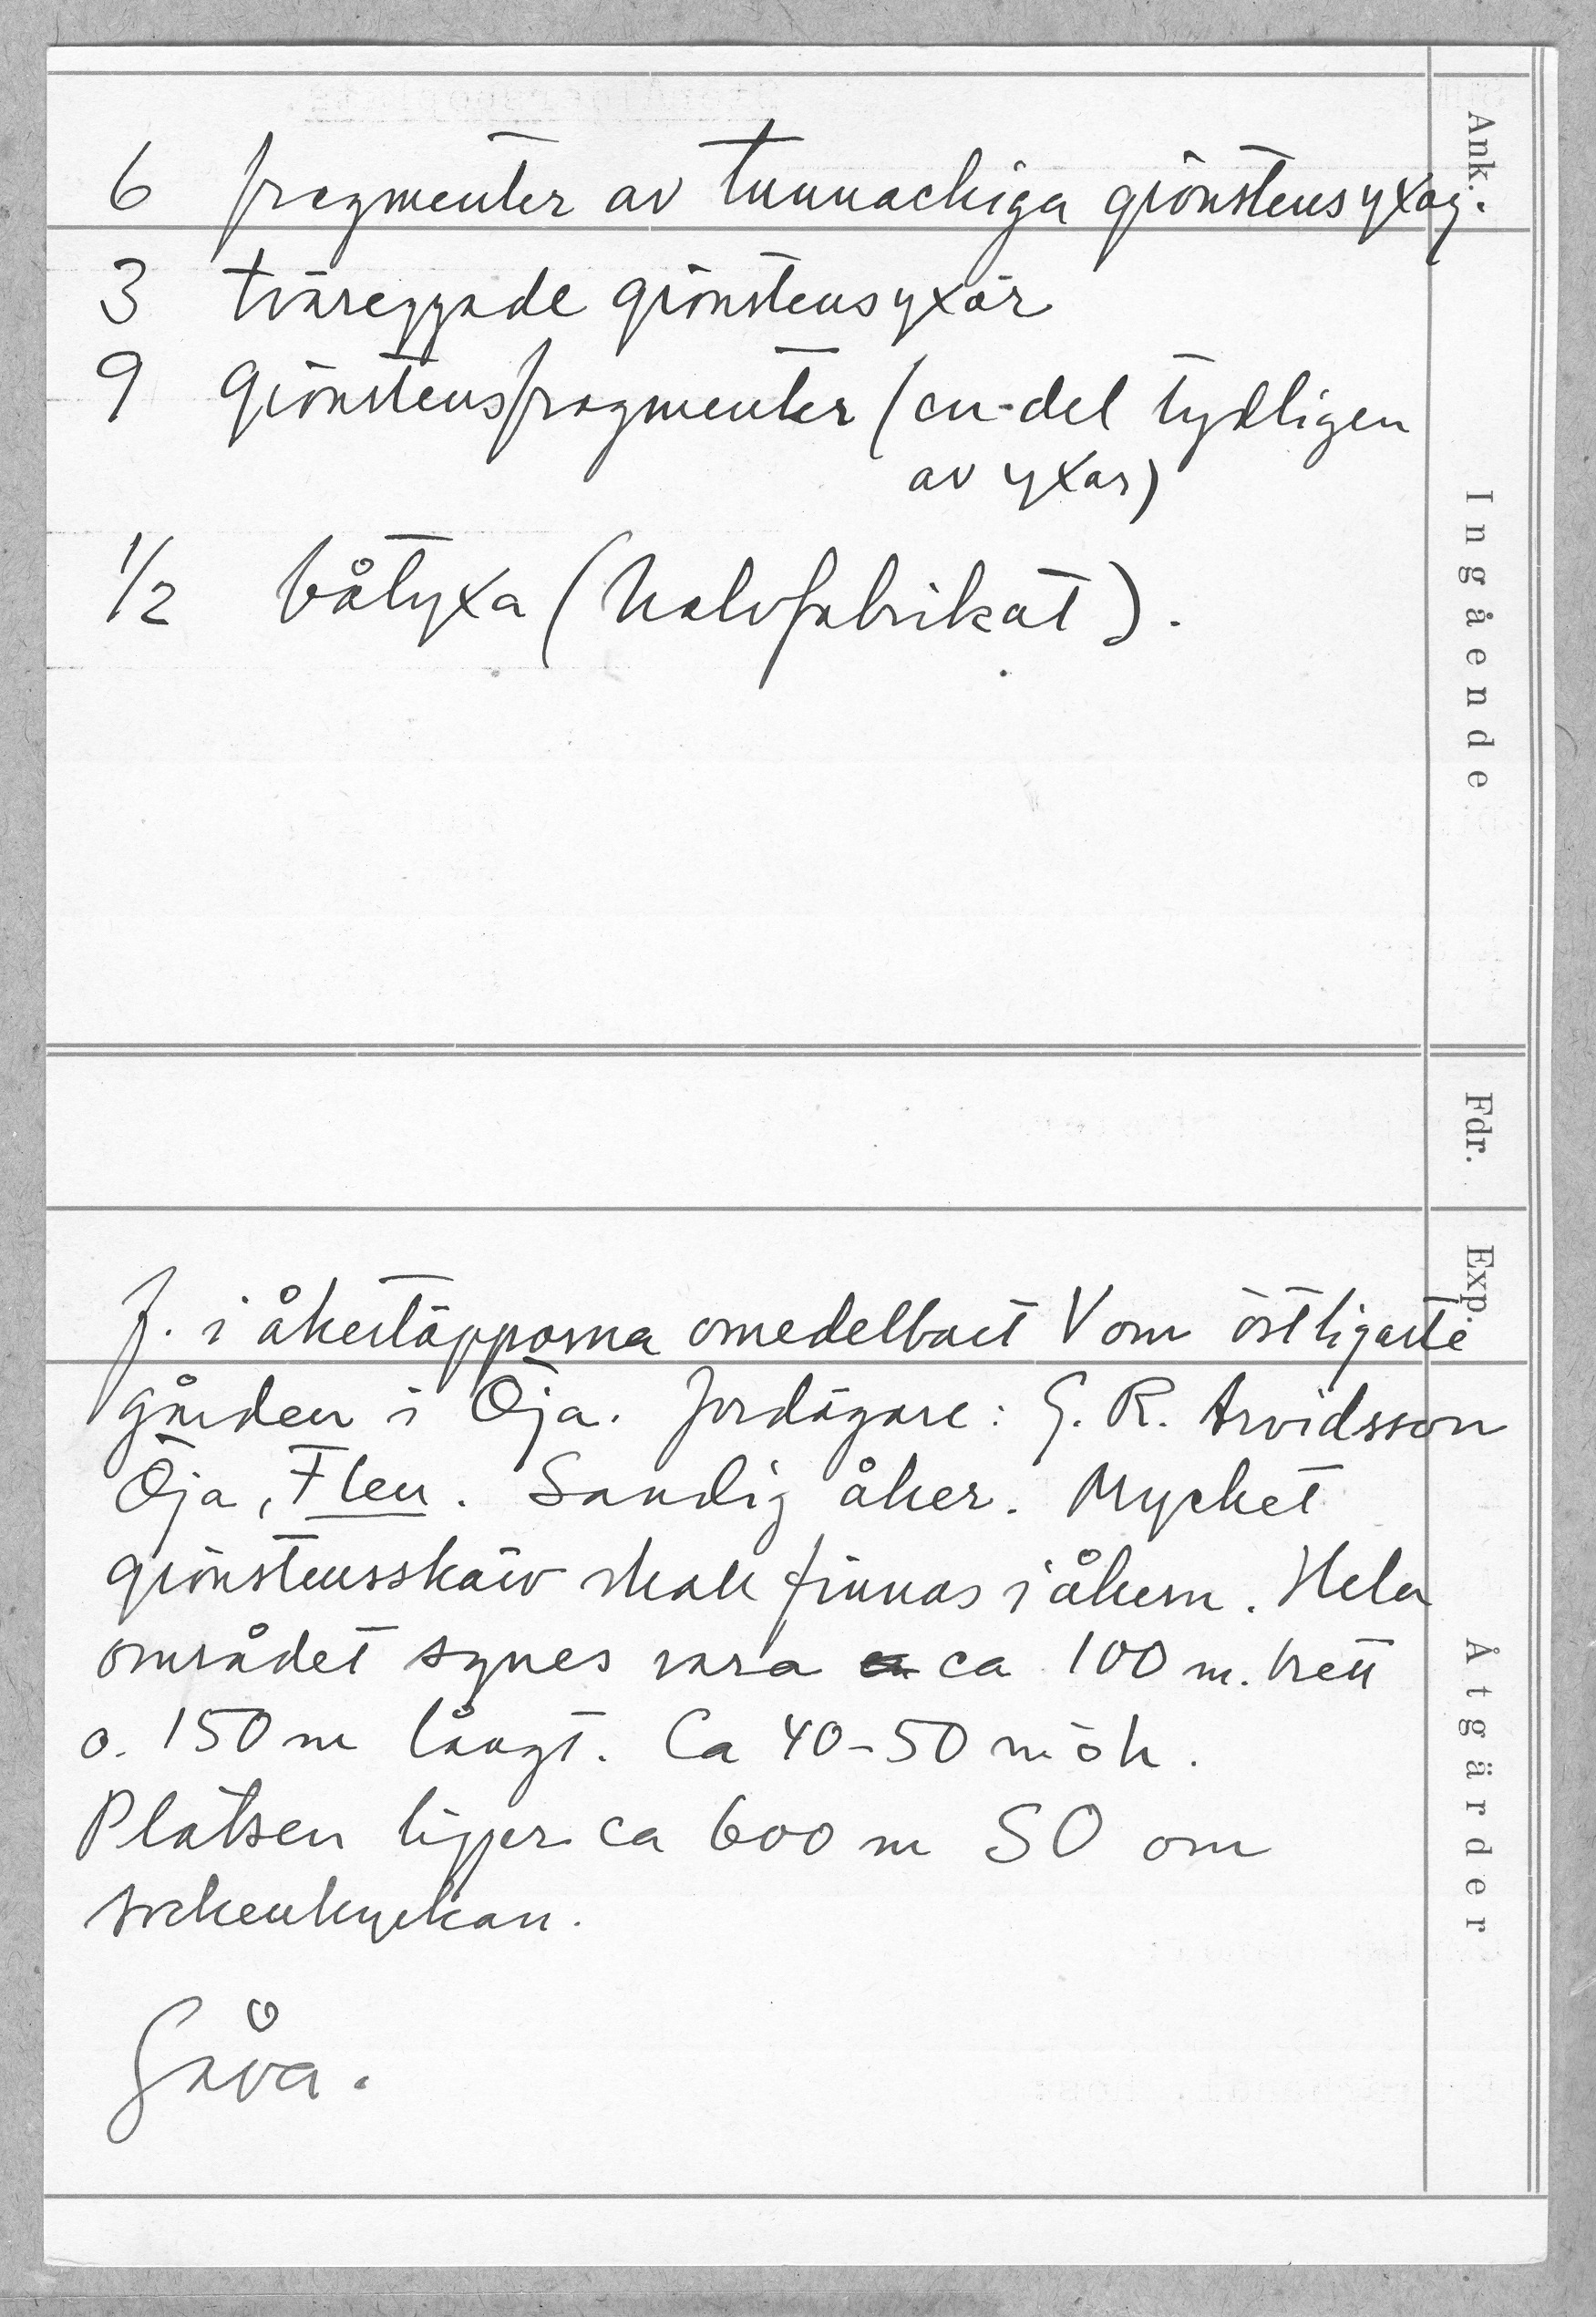 6 fragmenter av tunnackiga grönstensyxor.
3 tväreggade grönstensyxor
9 Grönstensfragmenter (en del tydligen
av yxor)
1/2 båtyxa (halvfabrikat).
F. i åkertäpporna omedelbart V om östligaste
gården i Öja. Jordägare: G. R. Arvidsson
Öja, Flen. Sandig åker. Mycket
grönstensskärv skall finnas i åkern. Hela
området synes vara ca 100 m. brett
o. 150 m långt. Ca 40-50 m ö h.
Platsen ligger ca 600 m SO om
sockenkyrkan.
Gåva.
Ank.
Ingående
Fdr.
Exp.
Åtgärder